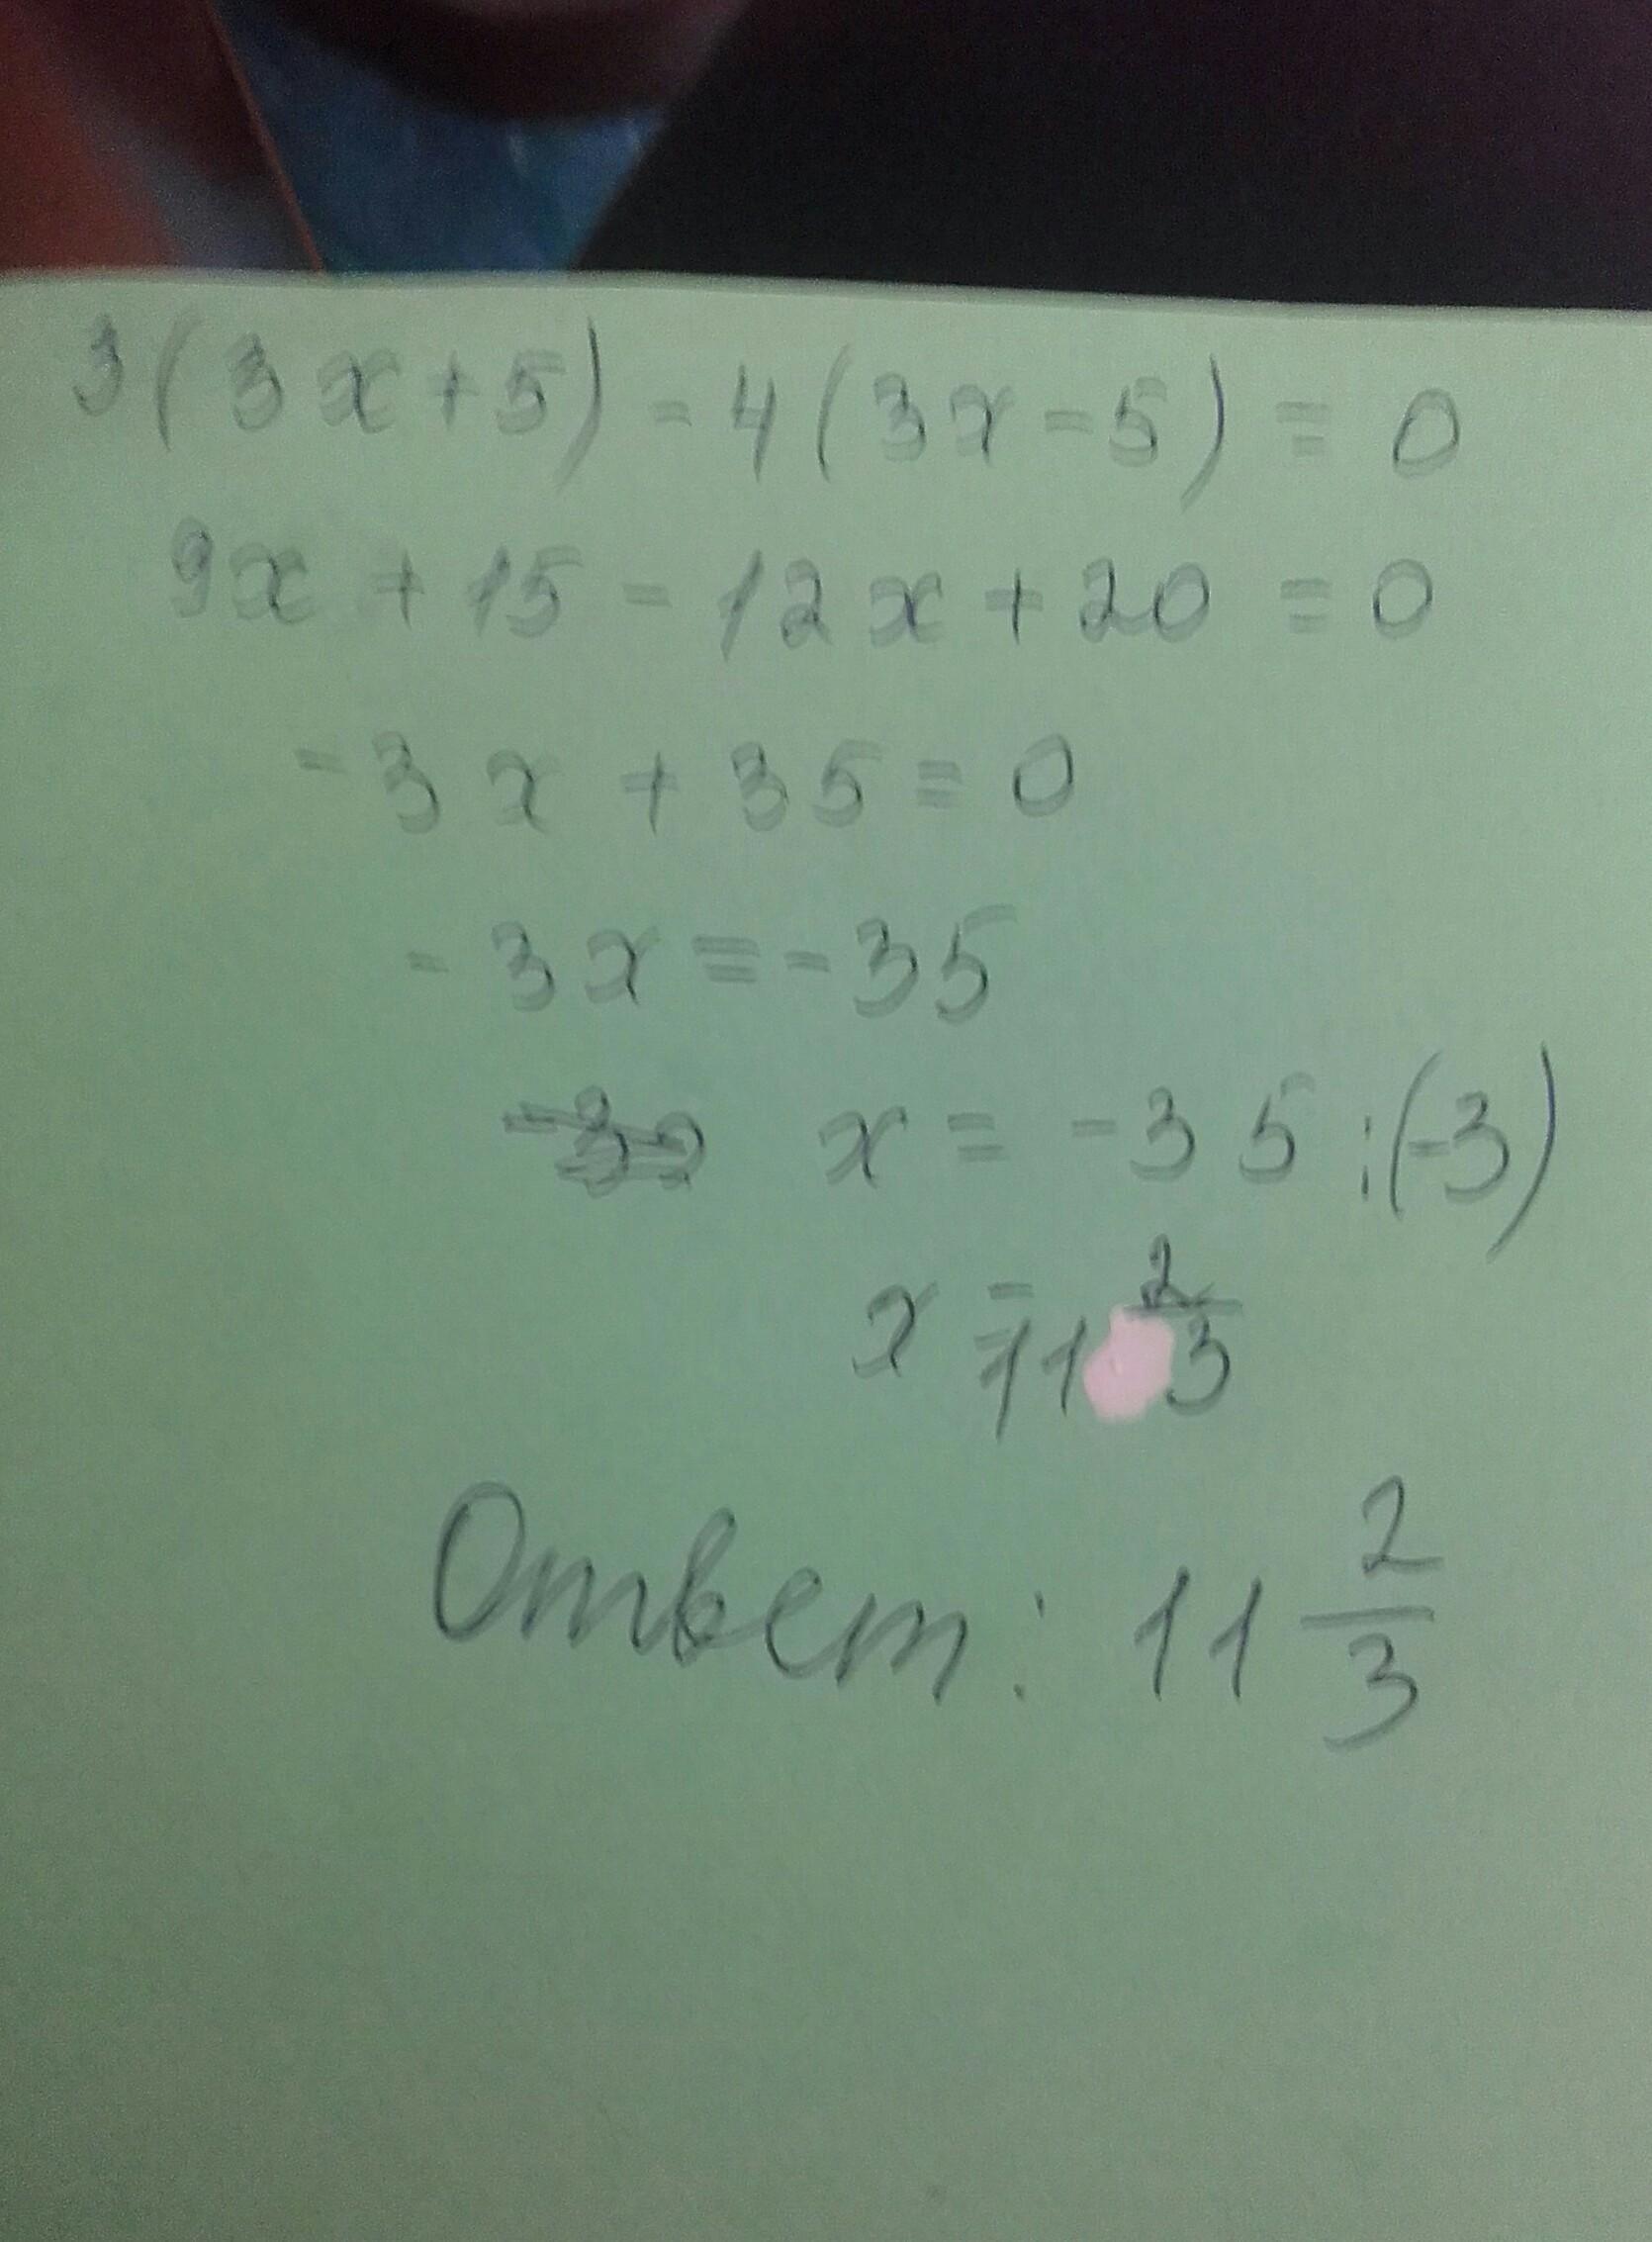 3(3x+5)-4(3x-5)=0
9x+15-12x+20=0
-3x+35=0
-3x=-35
x=-35:(-3)
x=11 2/3
Ответ: 11 2/3